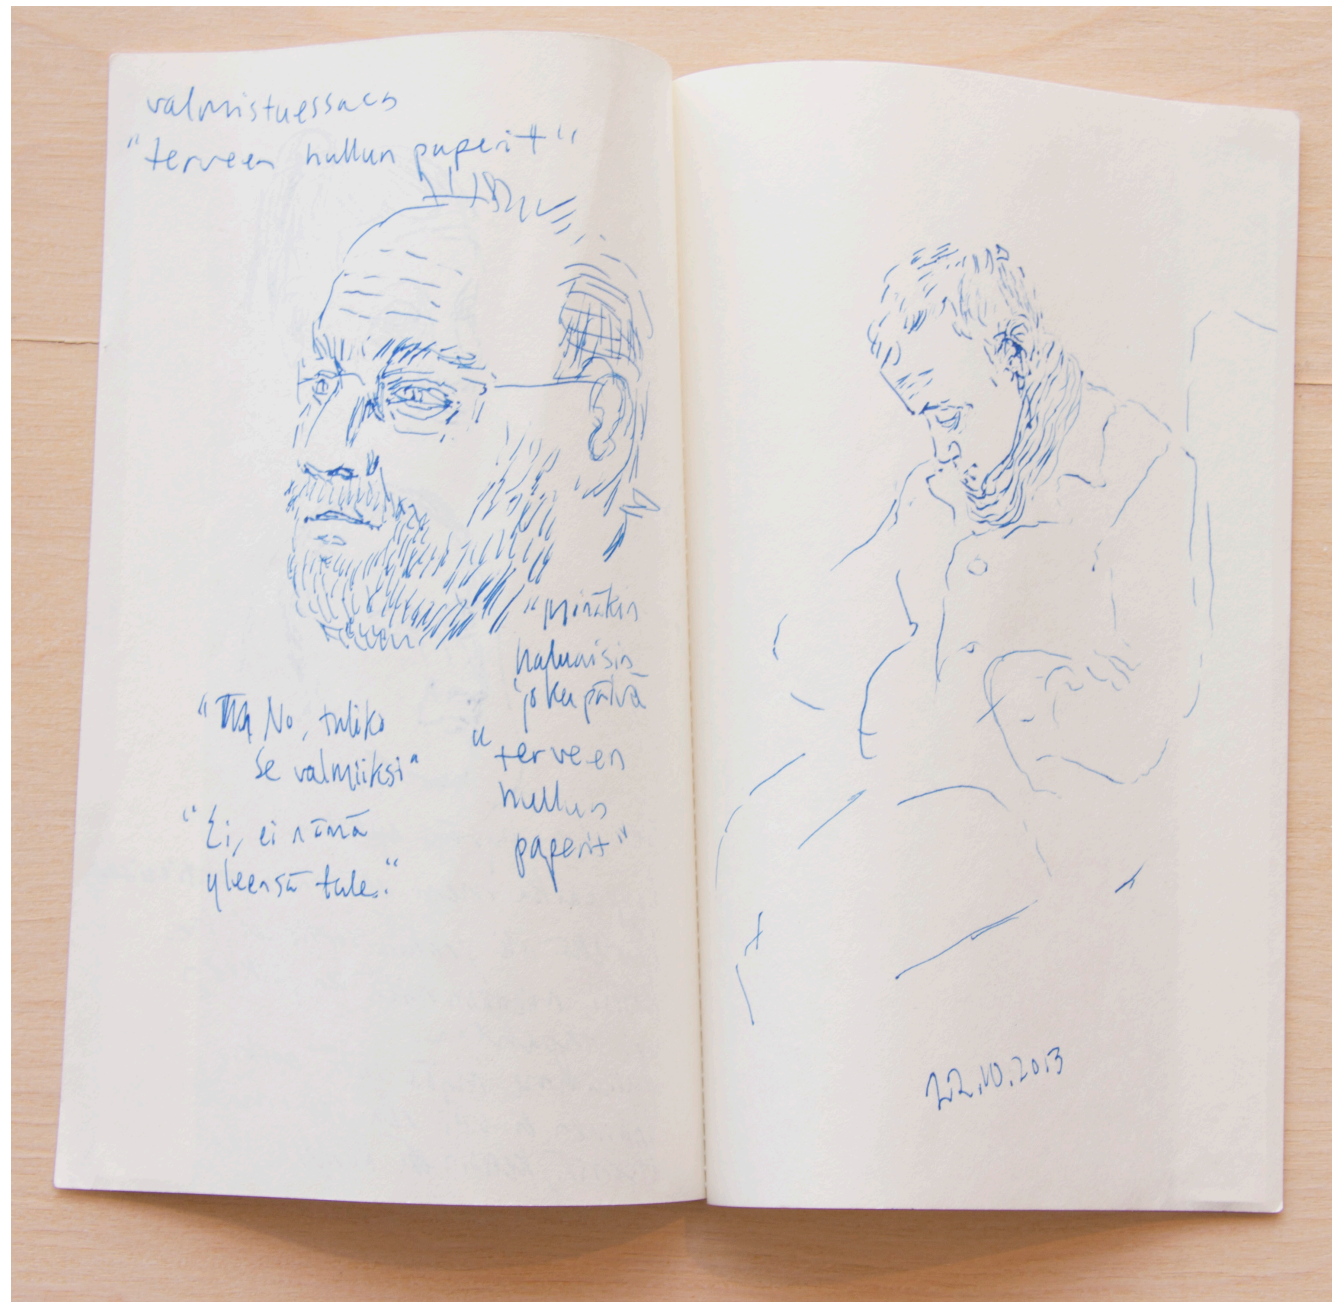 valmistuessaan
"terveen hullun paperit"
"minäkin
haluaisin
joku päivä
"terveen
hullun
paperit"
" No, tuliko
se valmiiksi"
"Ei, ei nämä
yleensä tule."
22.10.2013